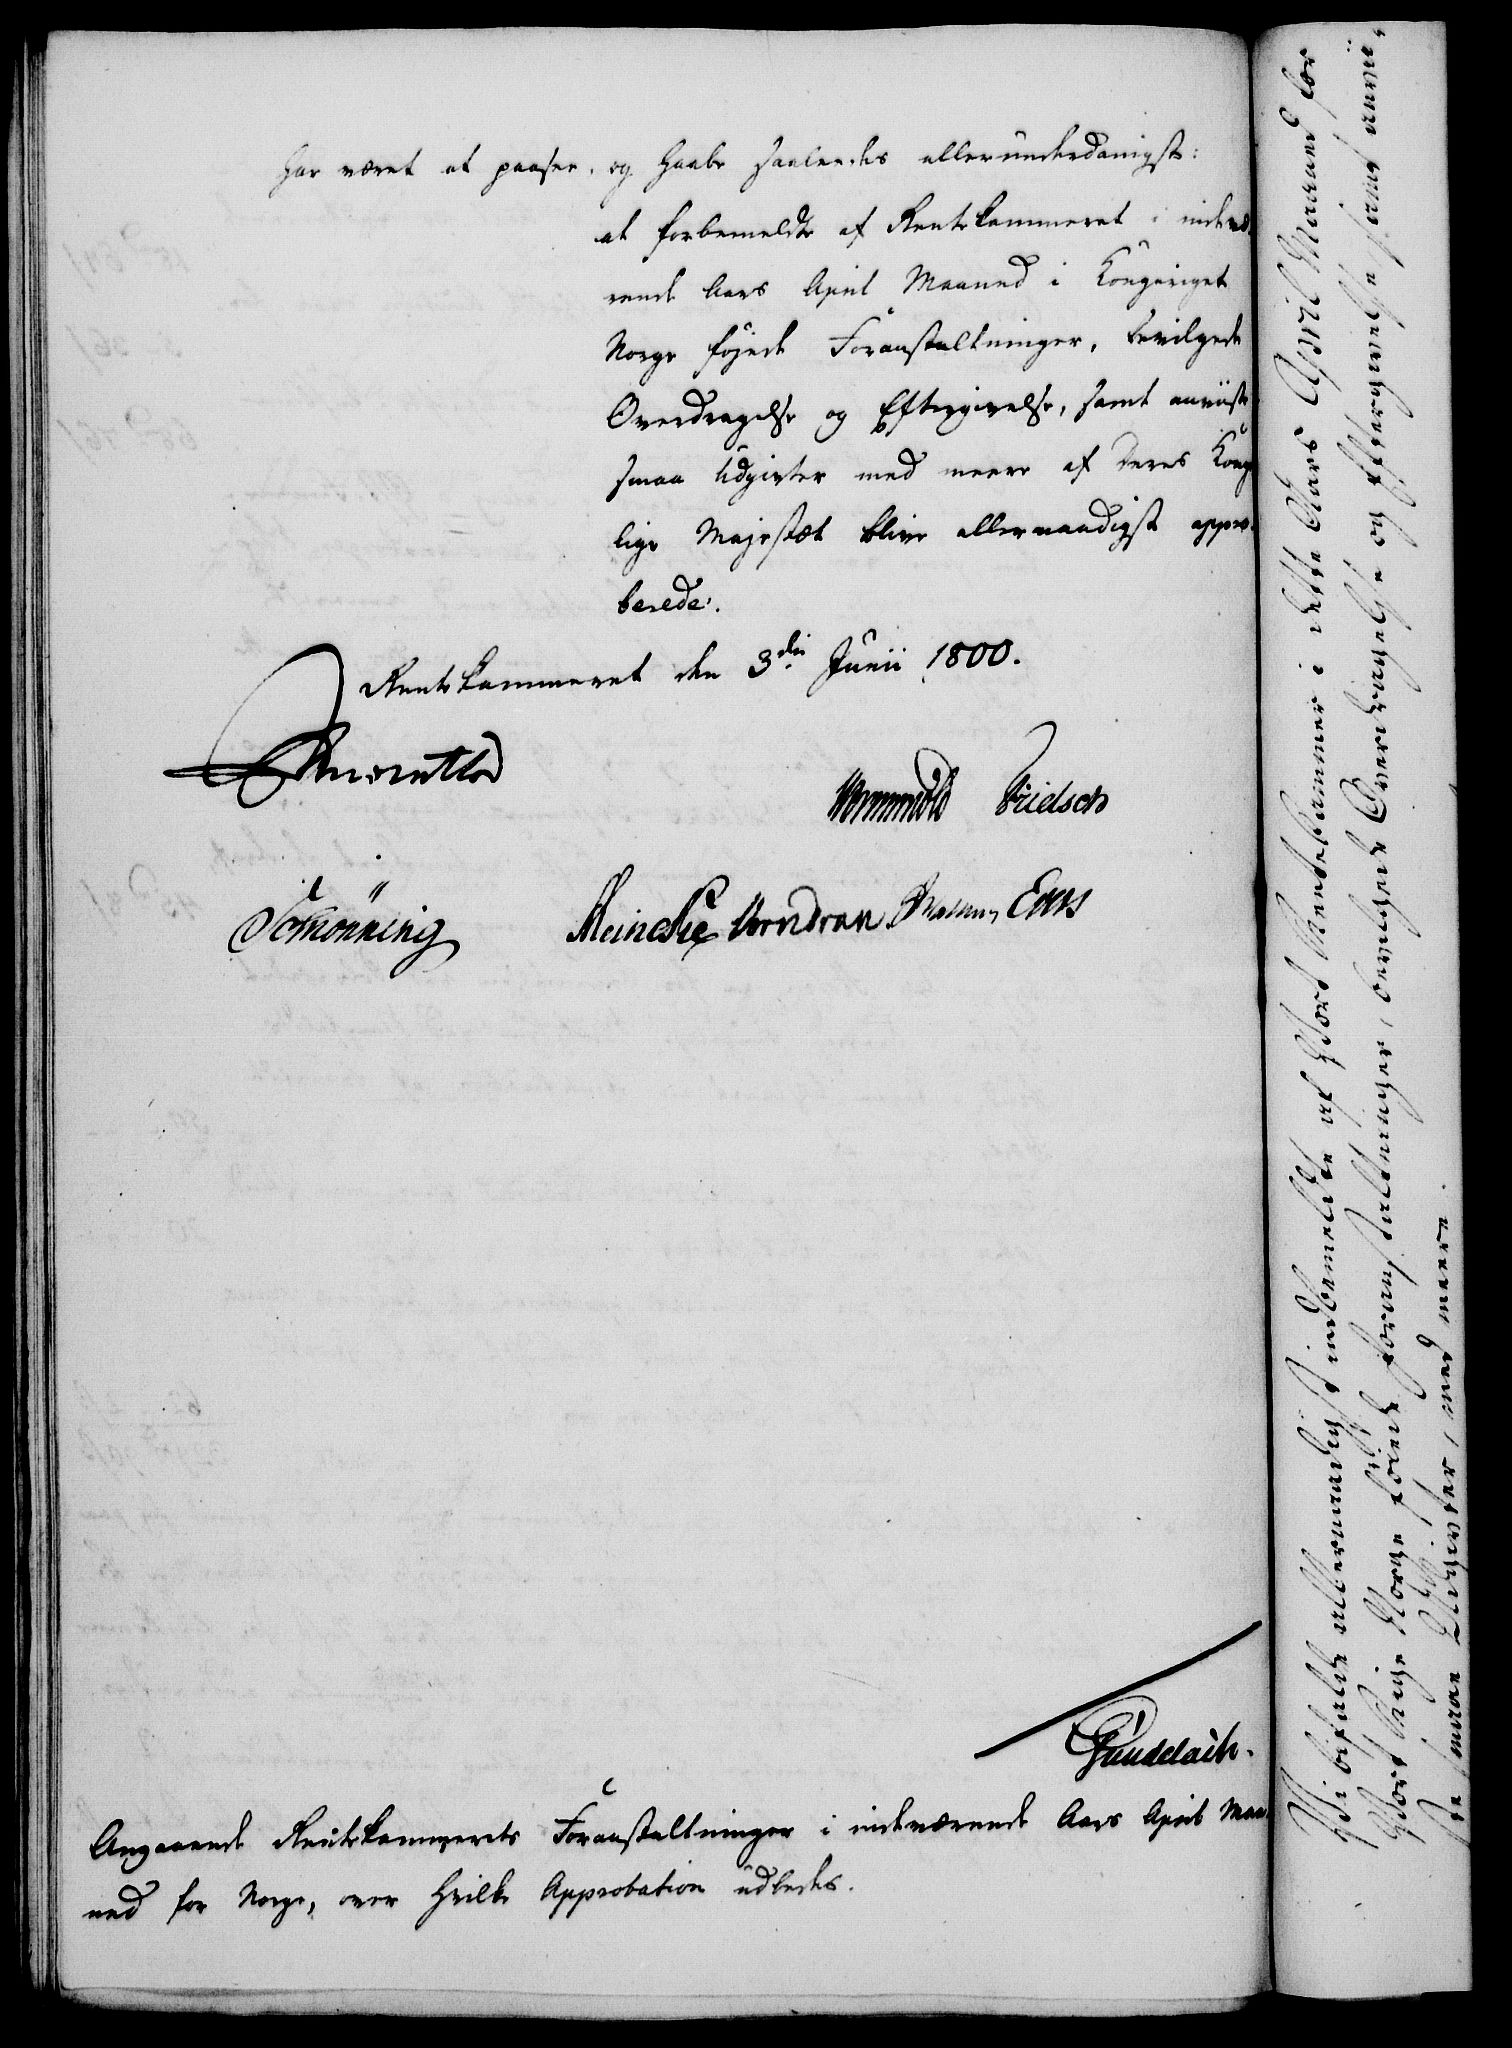 har været at paasee, og haabe saaledes allerunderdanigst:
at forbemeldte af Rentekammeret i indevæ-
rende Aars April Maaned i Kongeriget
Norge føjede Foranstaltninger, bevilgede
Overdragelse og Eftergivelse, samt anviiste
smaa Udgivter med meere af Deres Konge
lige Majestæt blive allernaadigst appro-
berede.
Rentekammeret den 3die Junii 1800.
Wormskiold Frielsch
Schønning Meincke Vorndran Emes
Gundelach.
Angaaende Rentekammerets Foranstaltninger i indeværende Aars April Maa-
ned for Norge, over hvilke Approbation udbedes.
Vi bifalde allernaadigst indbemeldte af Vort Rentekammer i dette Aars April Maaned for
Vort Rige Norge føiede Foranstaltninger, bevilgede Overdragelse og Eftergivelse samt anvii-
ste smaae Udgivter, med meere.